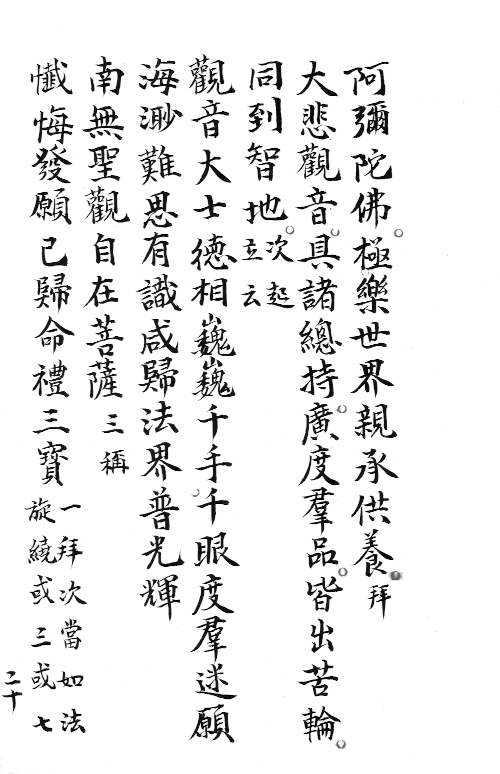 阿彌陀佛。極樂世界親承供養。拜
大悲觀音。具諸總持。廣度羣品。皆出苦輪。
同到智地。次起立云
觀音大士德相巍巍千手千眼度羣迷願
海渺難思有識咸歸法界普光輝
南無聖觀自在菩薩三稱
懺悔發願已歸命禮三寶一拜次當如法旋繞或三或七
二十